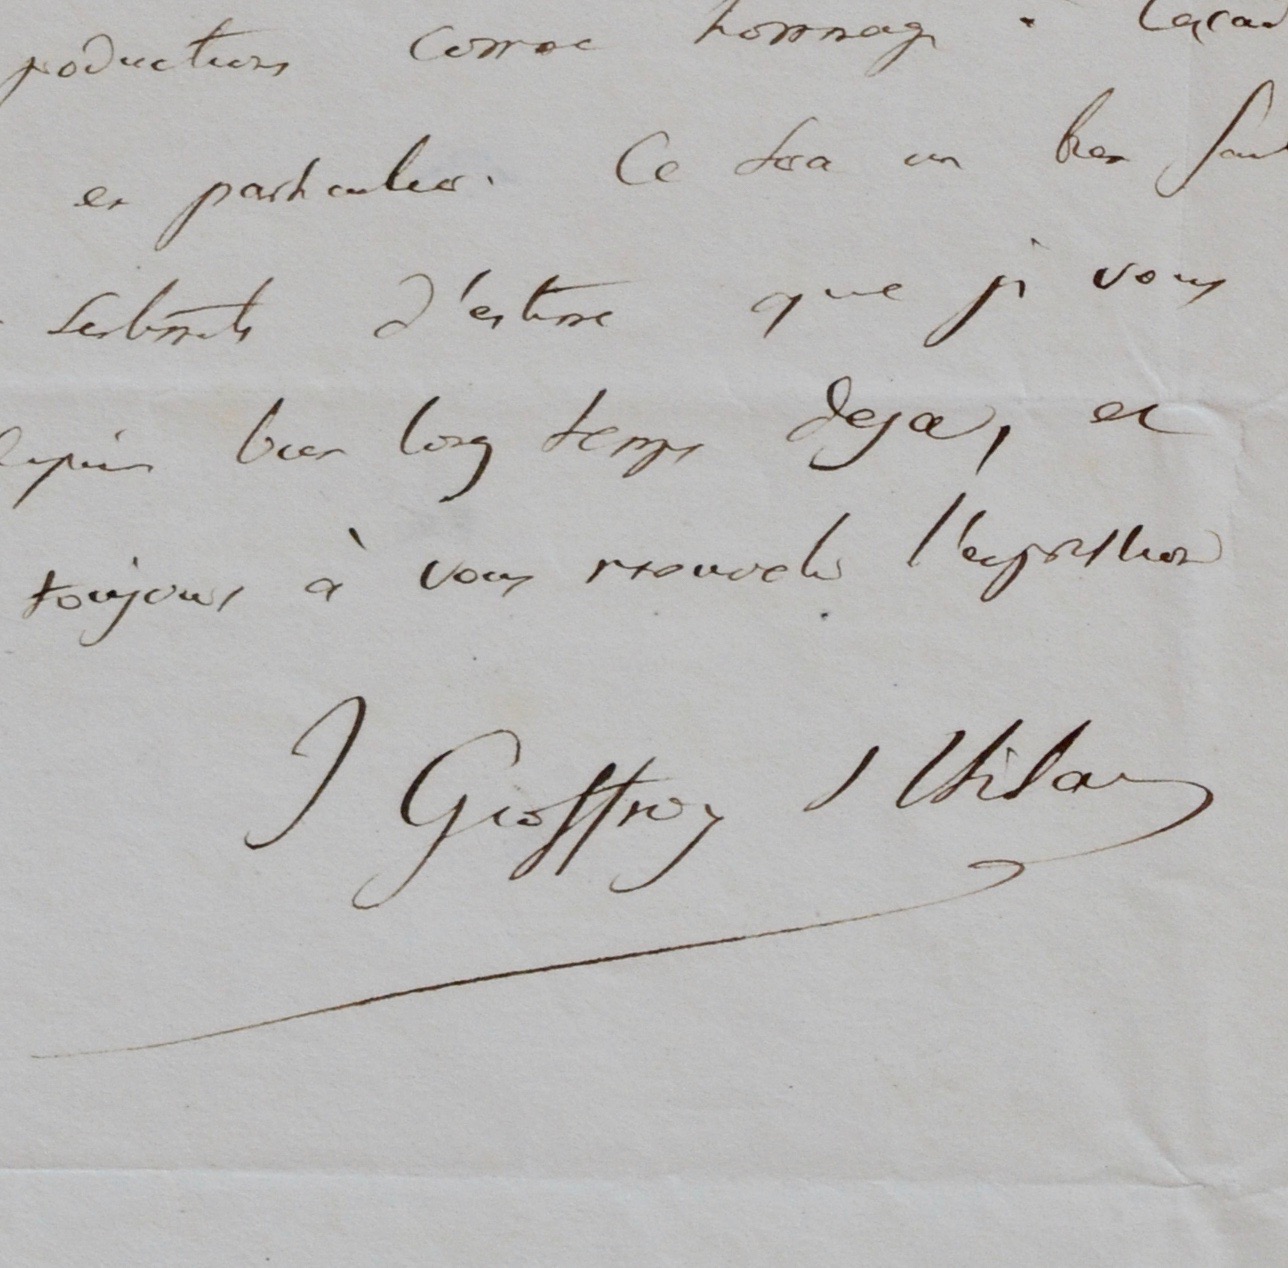 productions comme hommage à l'acad
en particulier. Ce sera un bien faib
sentiments d'estime que je vous
depuis bien long temps deja, et
toujours à vous renouveler l'expression
I Geoffroy St Hilaire